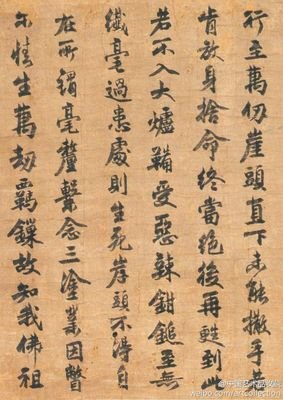 行至萬仞崖頭直下未能撒手若
肯放身捨命終當絕後再甦到此
若不入大爐鞴受惡辣鉗鎚至無
纖毫過患處則生死岸頭不得自
在所謂毫釐繫念三塗業因瞥
尓情生萬劫羈鏁故知我佛祖
@中国艺术品收藏
weibo.com/artcollection